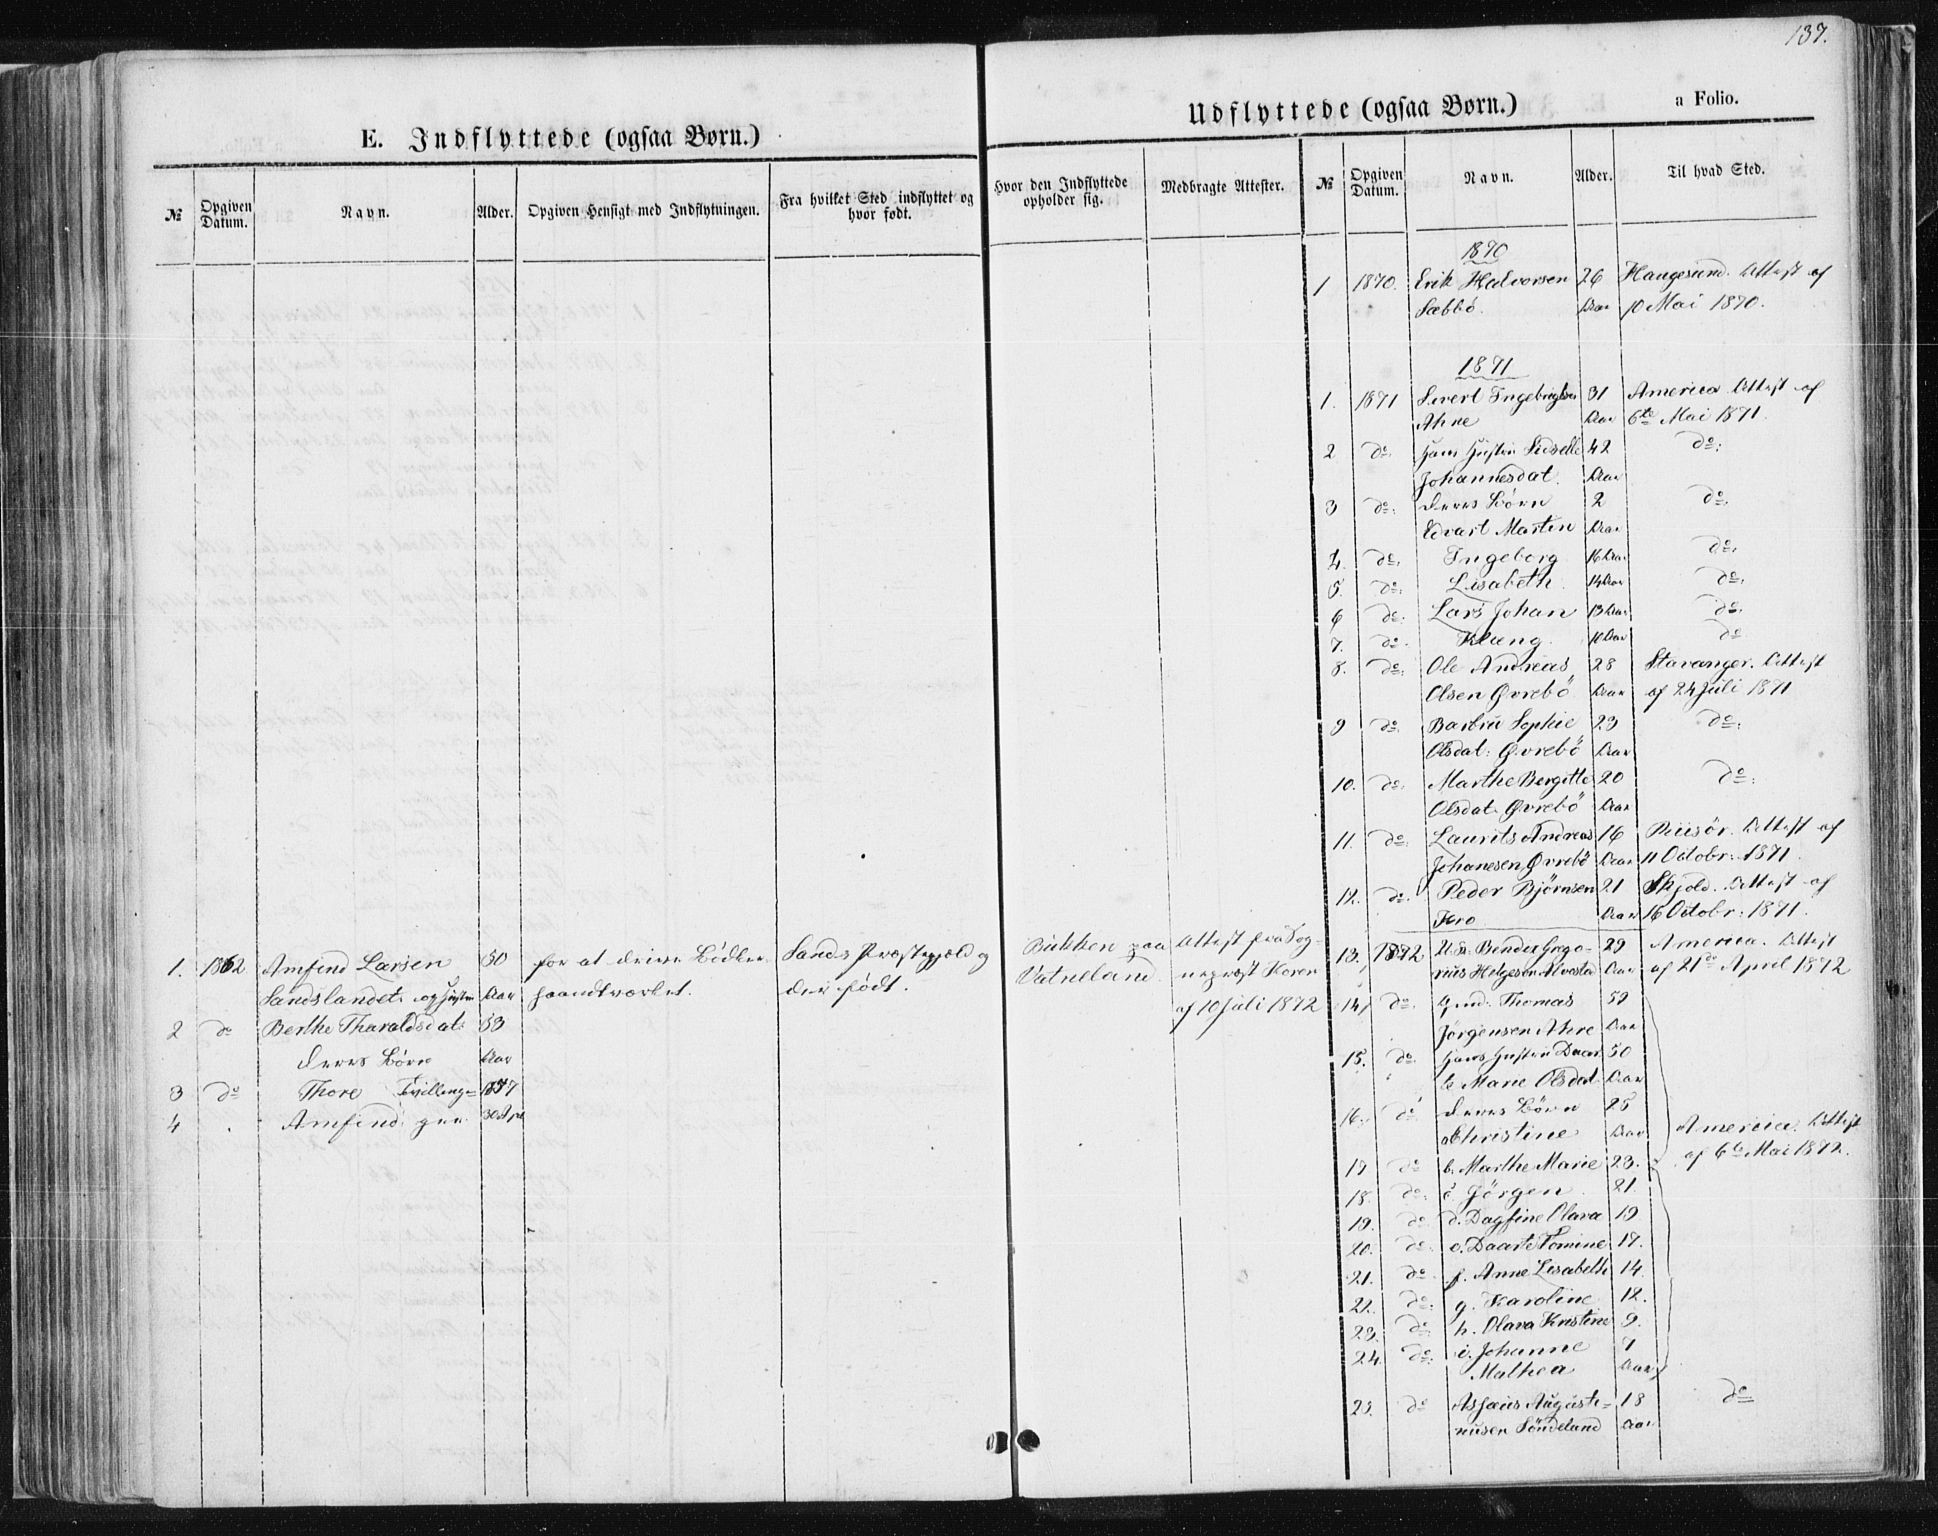 137.
E. Indflyttede (ogsaa Børn.)
№
Opgiven Datum.
Navn.
Alder.
Opgiven Hensigt med Indflytningen.
Fra hvilket Sted indflyttet og hvor født.
Hvor den Indflyttede opholder sig.
Medbragte Attester.
1. 1862 Amfind Larsen 50 for at drive
Sands Præstegjeld og
Vatneland
Attest fra Sog-
nepræst Koren
af 10 Juli 1872
Sandslandet og Aar
der født.
2 do Berthe Tharaldsdat: 53
deres Børn Aar
3 do Thore Tvilling= 1857
4 Amfind
Udflyttede (ogsaa Børn.)
a Folio.
№
Opgiven Datum.
Navn.
Alder.
Til hvad Sted.
1870
1 1870. Erik Halvorsen 26 Haugesund. Attest af
Sæbbö. Aar 10 Mai 1870.
1871
1. 1871 Sivert Ingebrigtsen 31 America Attest af
Ahne Aar 6te Mai 1871.
2 do. Hans Hustru Sidselle 42 do:
Johannesdat. Aar
3 do: deres Børn 2 do.
Edvart Martin Aar
4. do. Ingeborg 16 Aar do.
5. do: Lisabeth 14 Aar do.
6 do: Lars Johan 13 Aar do.
7. do. Klæng 10 Aar do
8. do: Ole Andreas 28 Stavanger. Attest
Olsen Øvrebö Aar af 24 Juli 1871
9 do. Barbru Sophie 23 do:
Olsdat: Øvrebö Aar
10. do: Marthe Bergitte 20 do:
Olsdat. Øvrebö Aar
11. do: Laurits Andreas 16 Riisör. Attest af
Johanesen Øvrebö Aar 11 Octobr: 1871.
12. do. Peder Bjørnsen 21 Skjold. Attest af
Aar 16 Octobr: 1871.
13. 1872 Bendix Grego- 29 America. Attest
rius Helgesen Aar af 21de April 1872
14 do: Thomas 52
Jörgensen Ahre Aar
15. do. Hans Hustru Daar- 50
te Marie Olsdat. Aar
16. do deres Børn 25
a Christine Aar
America. Attest
af 6te Mai 1872.
17 do b. Marthe Marie 23.
18. do: c. Jörgen 21.
19. do d. Dagfine Olava 19
20. do: e. Daarte Tomine 17.
21. do. f. Anne Lisabeth 14.
22. do: g. Karoline 12.
23. do: h. Olava Kristine 9.
24. do: i. Johanne 7
Mathea Aar
25. do Auguste- 18 do
nusen Söndeland Aar